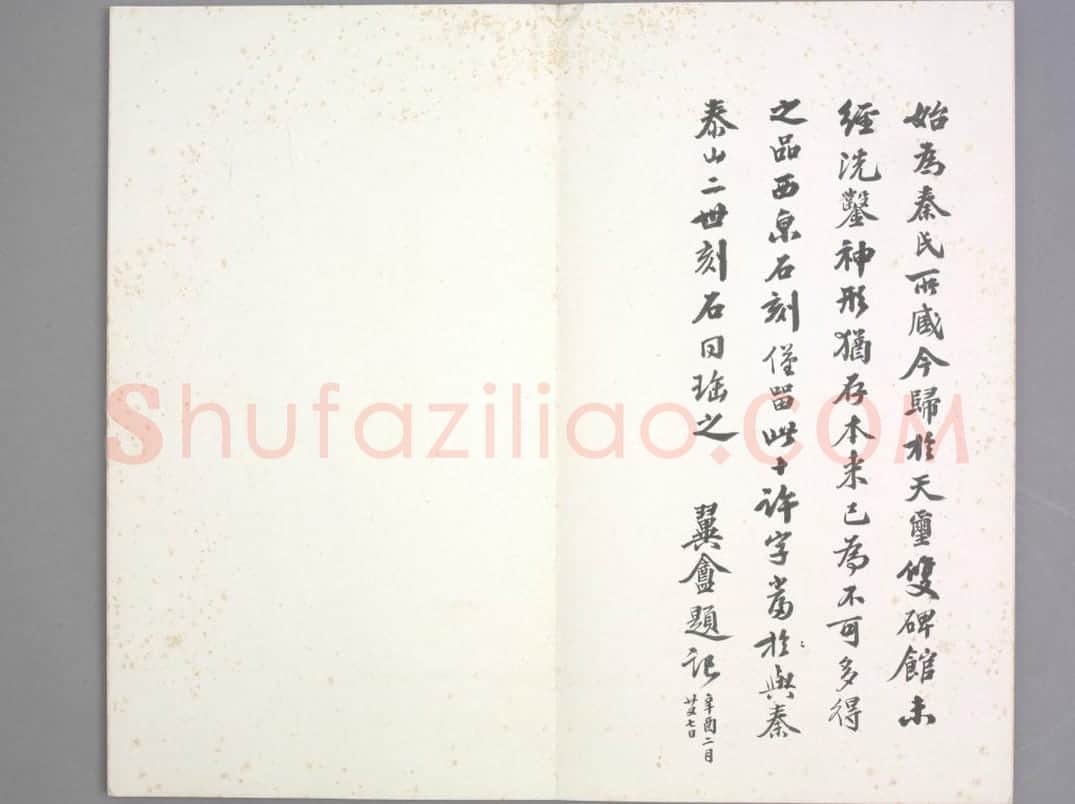 始為秦氏所藏今歸於天璽雙碑館未
經洗鑿神形猶存本來已為不可多得
之品西泉石刻僅留此十許字當於與秦
泰山二世刻石同珤之
翼盦題記
辛酉二月
廿七日
Shufaziliao.COM